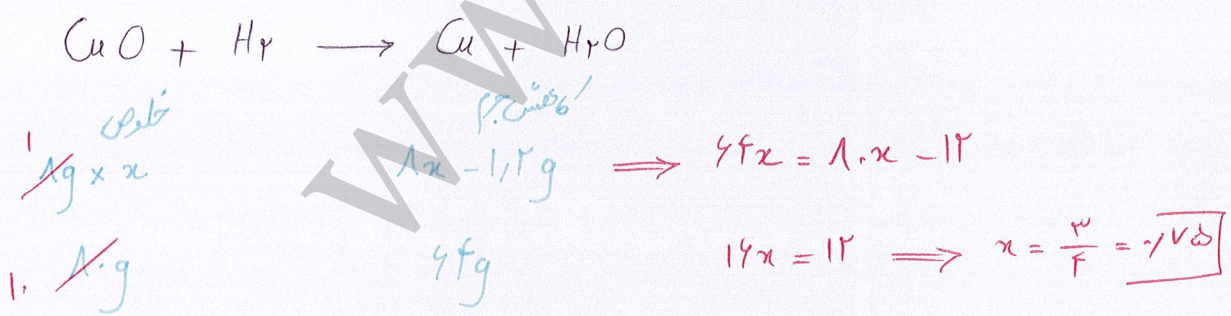 CuO + H۲ ⟶ Cu + H۲O
خلوص کاهش جرم
۱ ۸g × x ۸x - ۱,۲g ⟹ ۶۴x = ۸۰x - ۱۲
۱۰ ۸۰g ۶۴g ۱۶x = ۱۲ ⟹ x = ۳/۴ = ۰,۷۵
WW